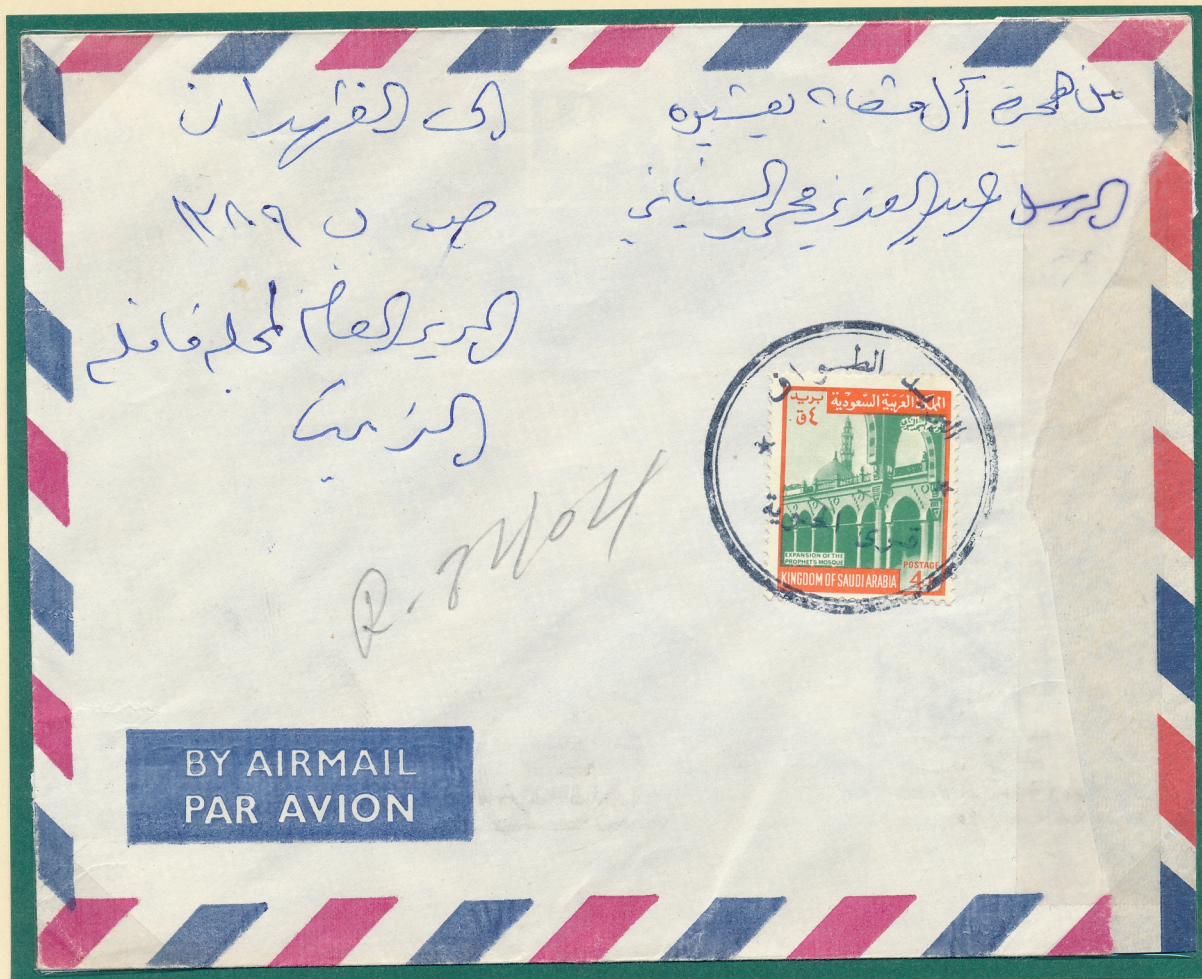 من هجرة آل مشاع بعشيره
المرسل عبد العزيز محمد السناني
الى الظهران
ص ب ١٣٨٩
المدير العام لمجلة قافلة
الزيت
البريد الطواف
قرى الحوية
المملكة العربية السعودية
بريد
٤ ق
EXPANSION OF THE
PROPHET'S MOSQUE
POSTAGE
KINGDOM OF SAUDI ARABIA 4
BY AIRMAIL
PAR AVION